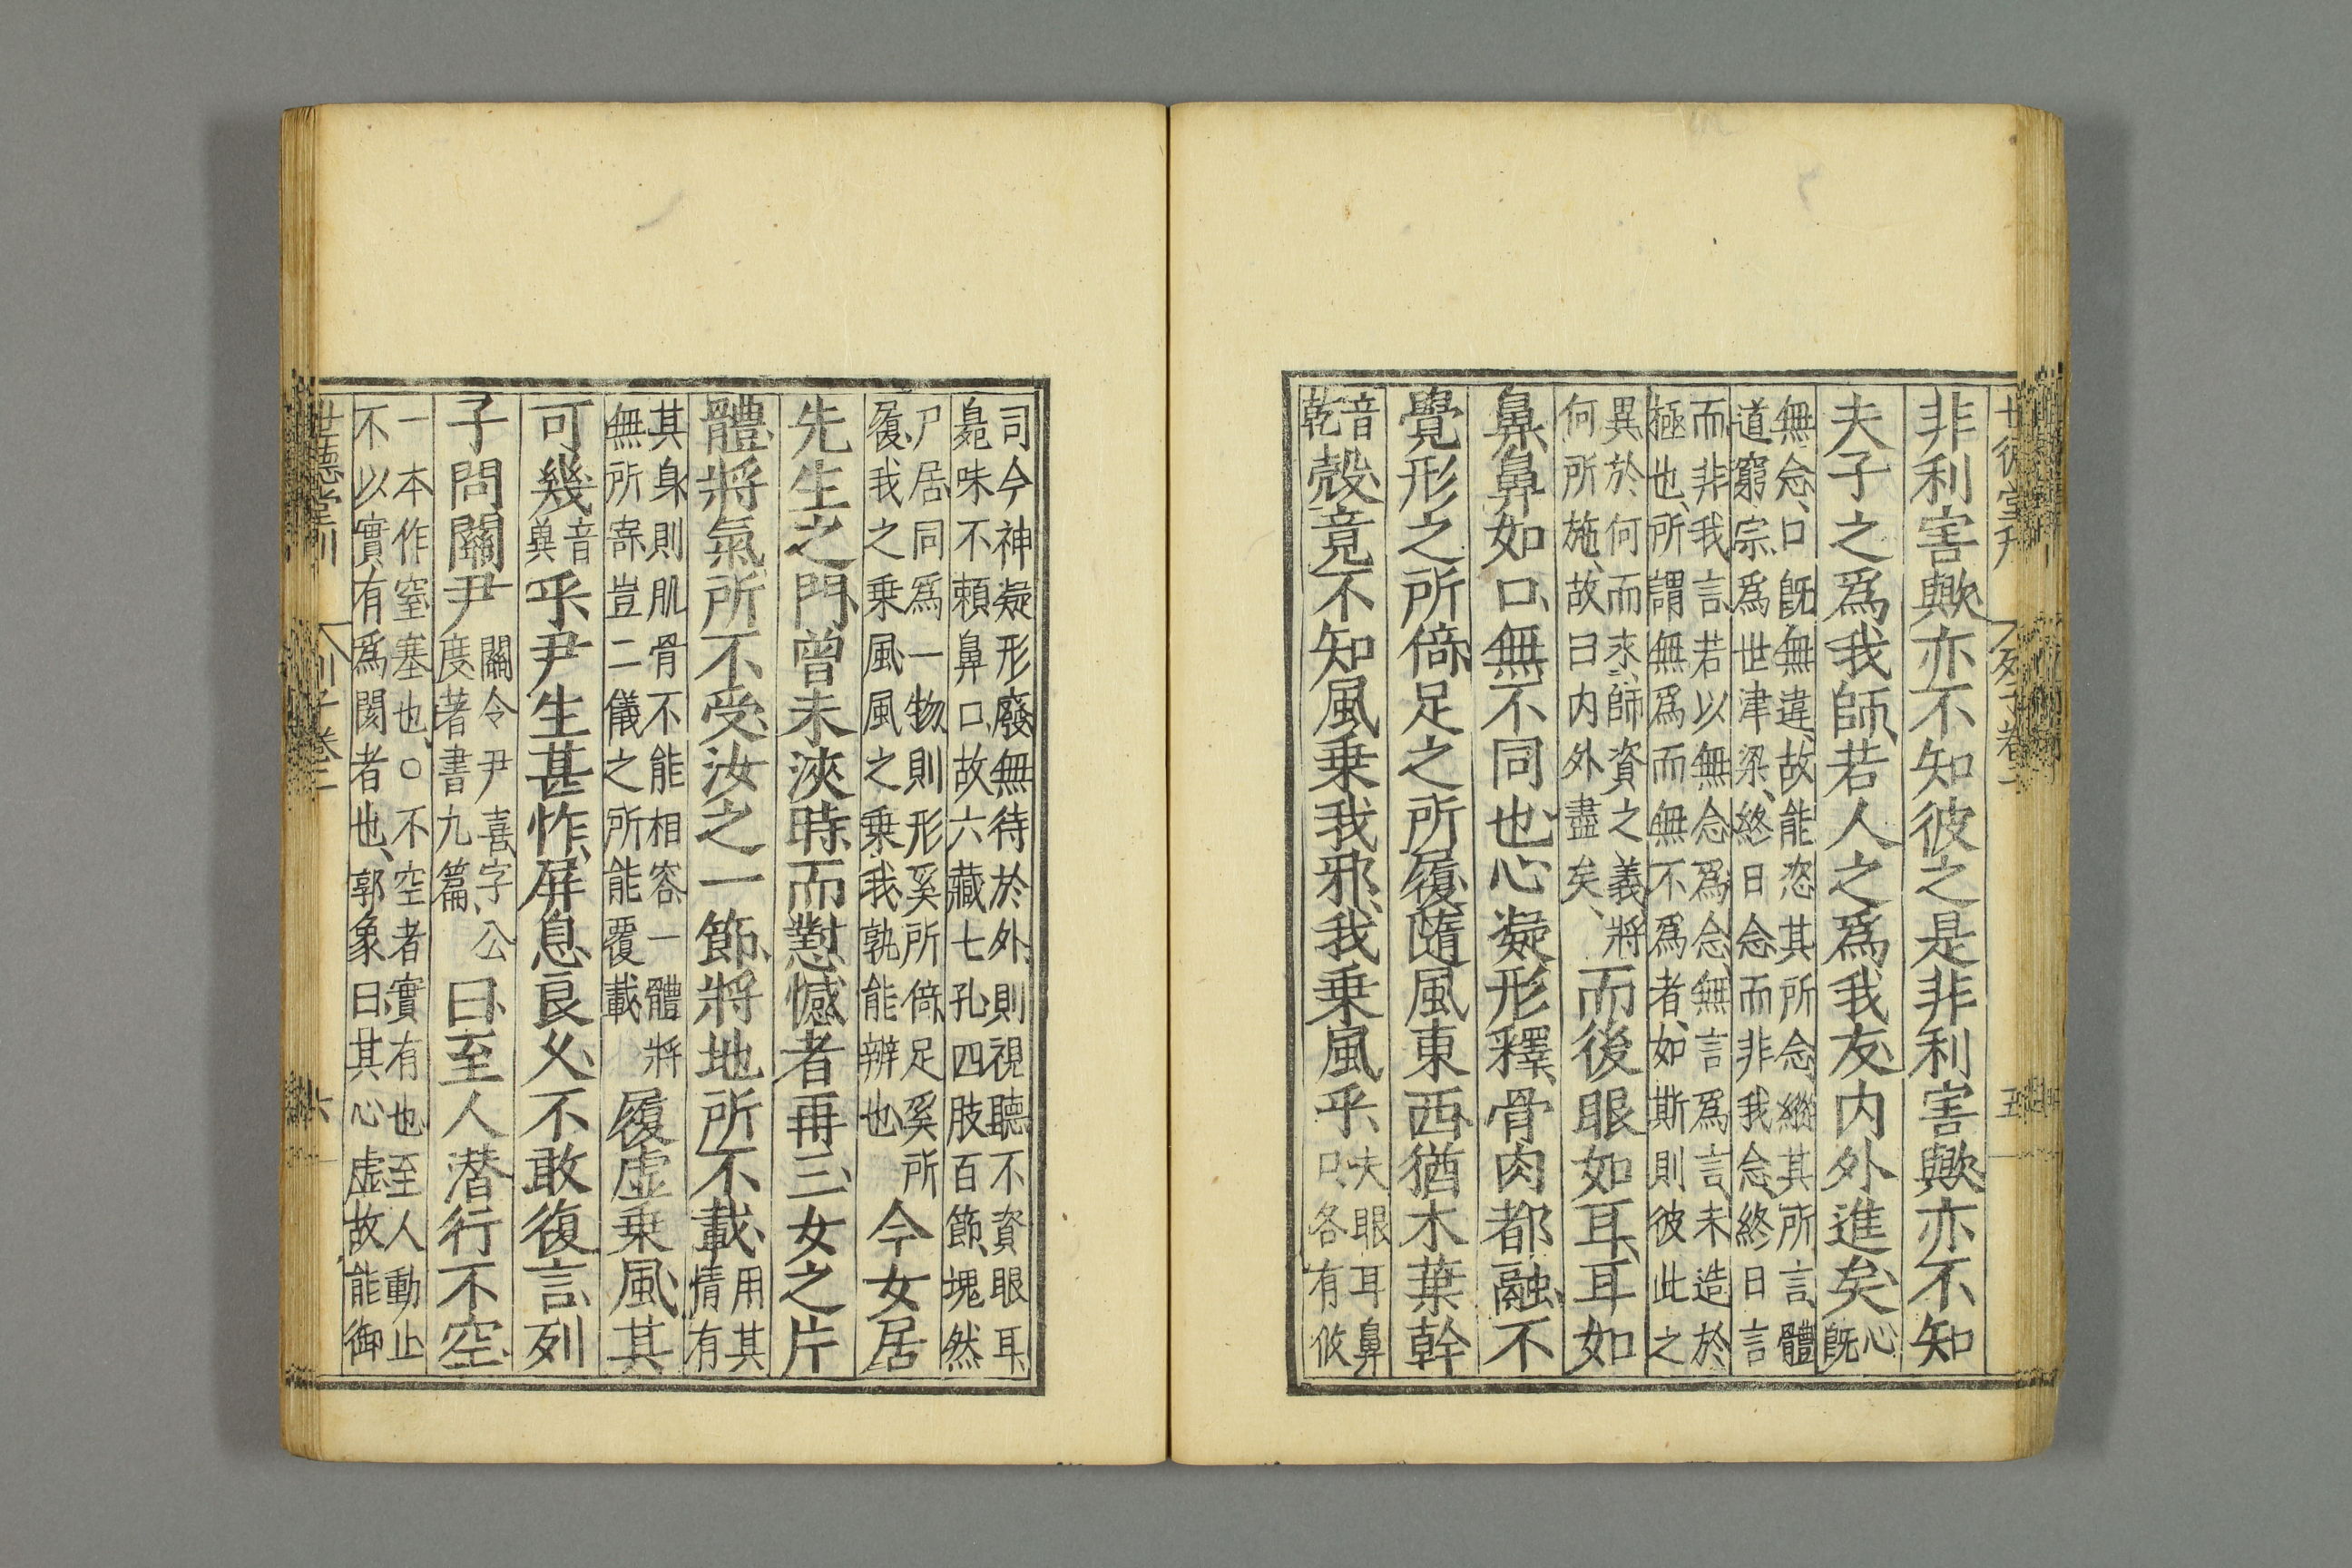 非利害歟亦不知彼之是非利害歟亦不知
夫子之爲我師、若人之爲我友、内外進矣、心
旣
無念、口旣無違、故能恣其所念、縱其所言、體
道窮宗、爲世津梁、終日念而非我念、終日言
而非我言、若以無念爲念、無言爲言、未造於
極也、所謂無爲而無不爲者、如斯則彼此之
異、於何而求、師資之義、將
何所施、故曰内外盡矣、
而後眼如耳、耳如
鼻、鼻如口、無不同也、心凝形釋、骨肉都融、不
覺形之所倚、足之所履、隨風東西、猶木葉幹
音
乾
殼、竟不知風乗我邪、我乗風乎、
夫眼耳鼻
口、各有攸
司、今神凝形廢、無待於外、則視聽不資眼耳、
臭味不頼鼻口、故六藏七孔四肢百節、塊然
尸居、同爲一物、則形奚所倚、足奚所
履、我之乗風、風之乗我、孰能辨也、
今女居
先生之門、曾未浹時、而懟憾者再三、女之片
體、將氣所不受、汝之一節、將地所不載、
用其
情有
其身、則肌骨不能相容、一體將
無所寄、豈二儀之所能覆載、
履虚乗風、其
可幾
音
兾
乎、尹生甚怍、屏息良久、不敢復言、列
子問關尹
關令尹喜、字公
度、著書九篇、
曰、至人潜行不空、
一本作窒塞也、○不空者、實有也、至人動止
不以實有爲閡者也、郭象曰、其心虚、故能御
世德堂刊
列子卷二
五
世德堂刊
列子卷二
六